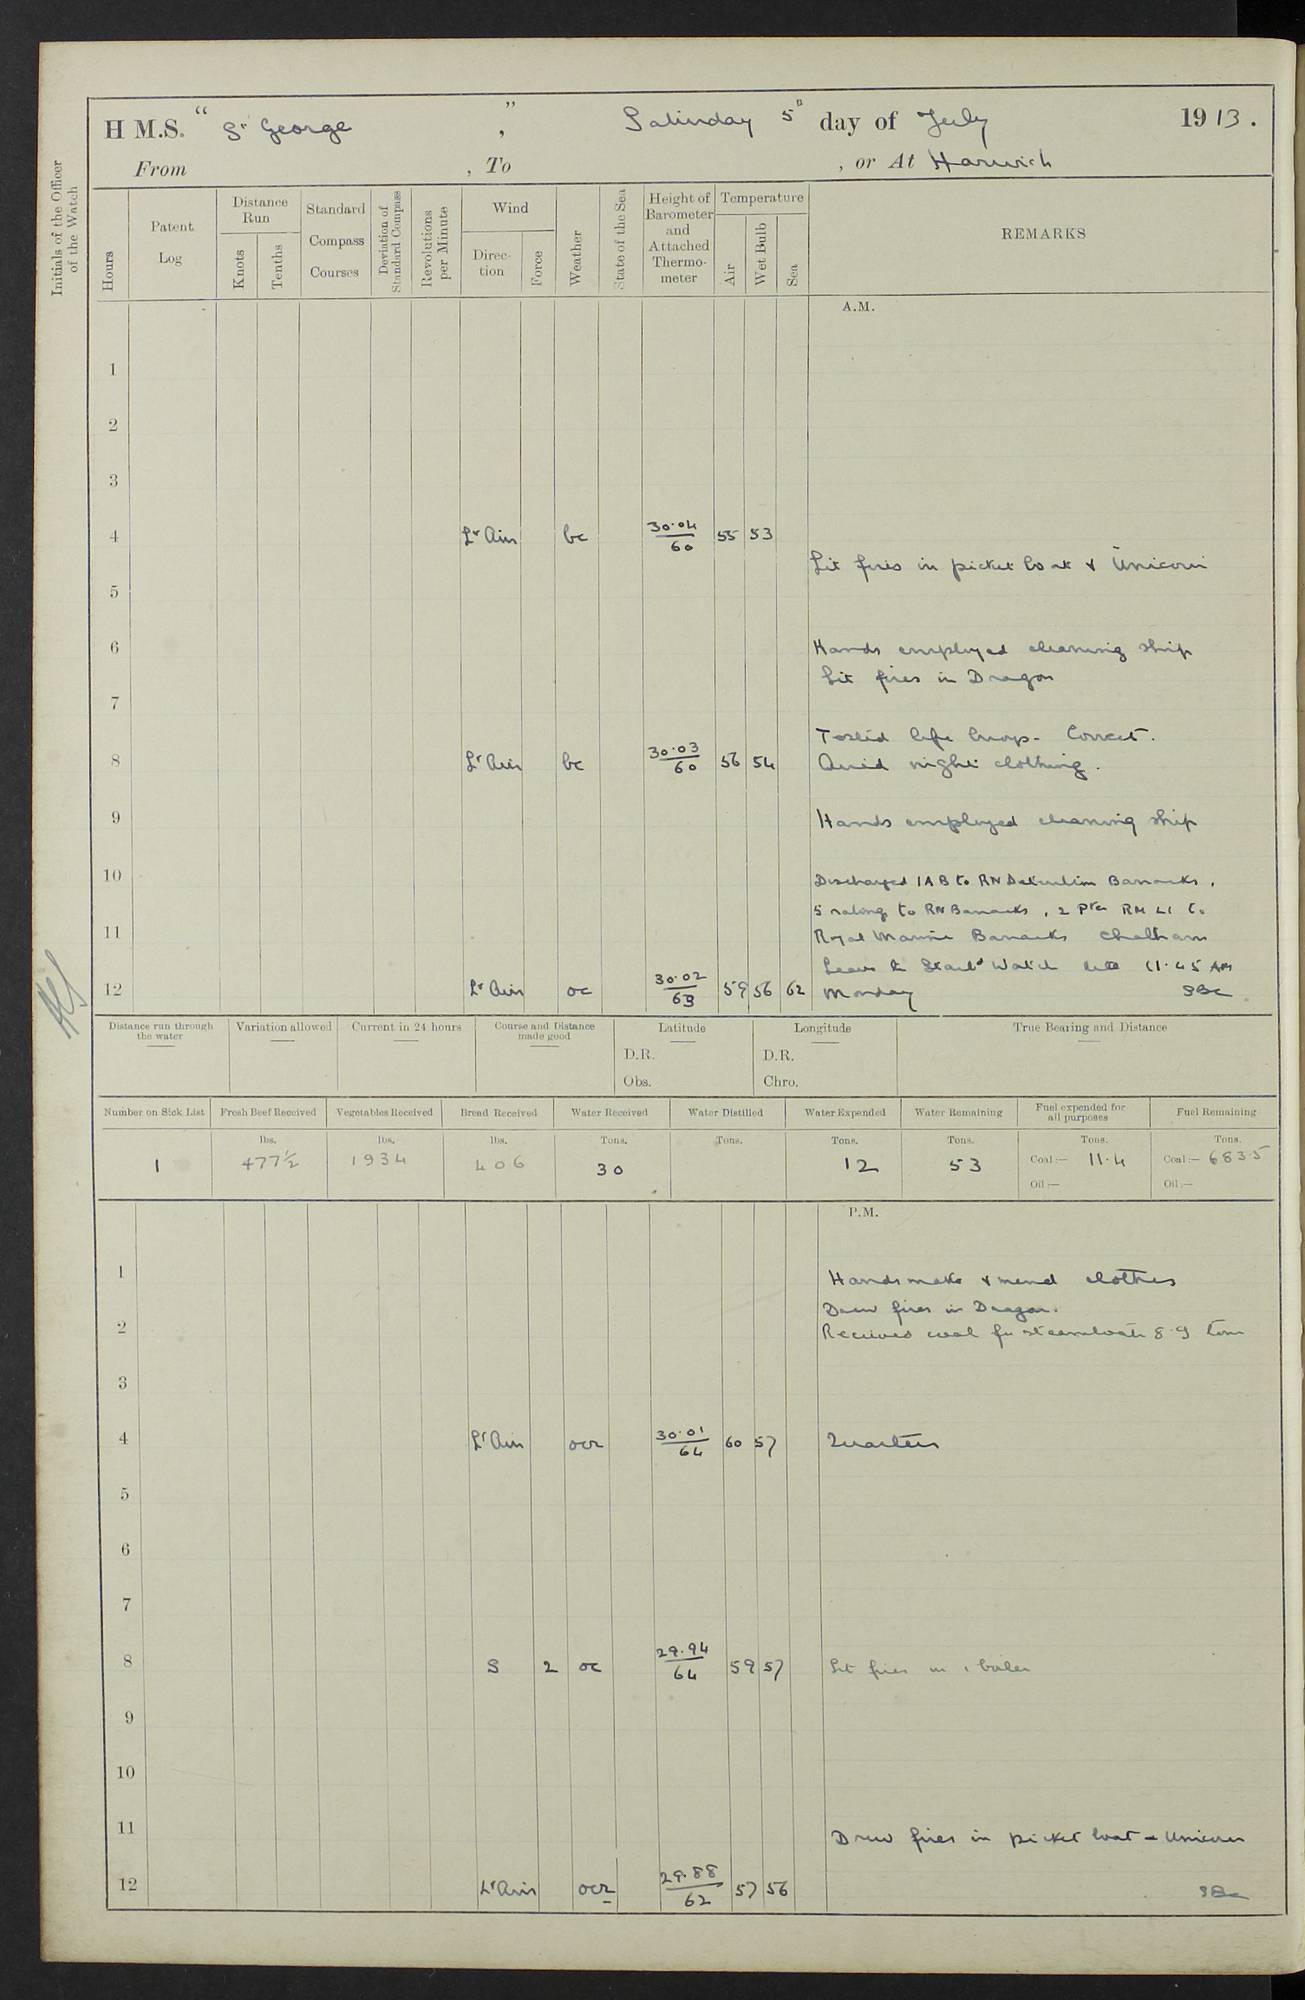 H M.S. " St George " , Saturday 5th day of July 1913.
From , To , or At Harwich
Initials of the Officer of the Watch
Hours
Patent Log
Distance Run
Knots
Tenths
Standard Compass Courses
Deviation of Standard Compass
Revolutions per Minute
Wind
Direction
Force
Weather
State of the Sea
Height of Barometer and Attached Thermometer
Temperature
Air
Wet Bulb
Sea
REMARKS
A.M.
1
2
3
4 Lt Airs bc 30.04 60 55 53
Lit fires in picket boat & Unicorn
5
6 Hands employed cleaning ship
Lit fires in Dragon
7
Tested life buoys - Correct.
8 Lt Airs bc 30.03 60 56 54 night clothing.
9 Hands employed cleaning ship
10 Discharged 1 AB to RN Detention Barracks,
5 ratings to RN Barracks, 2 Ptes RMLI to
11 Royal Marine Barracks Chatham
Leave to Starbd Watch 11.45 AM
12 Lt Airs oc 30.02 63 59 56 62 Monday
Distance run through the water
Variation allowed
Current in 24 hours
Course and Distance made good
Latitude
D.R.
Obs.
Longitude
D.R.
Chro.
True Bearing and Distance
Number on Sick List
1
Fresh Beef Received
lbs.
477½
Vegetables Received
lbs.
1934
Bread Received
lbs.
406
Water Received
Tons.
30
Water Distilled
Tons.
Water Expended
Tons.
12
Water Remaining
Tons.
53
Fuel expended for all purposes
Tons.
Coal:— 11.4
Oil:—
Fuel Remaining
Tons.
Coal:— 683.5
Oil:—
P.M.
1 Hands make & mend clothes
Drew fires in Dragon.
2 Received coal for steamboats 8.9 tons
3
4 Lt Airs ocr 30.01 64 60 57 Quarters
5
6
7
8 S 2 oc 29.94 64 59 57 Lit fires in 1 boiler
9
10
11 Drew fires in picket boat & Unicorn
12 Lt Airs ocr 29.88 62 57 56